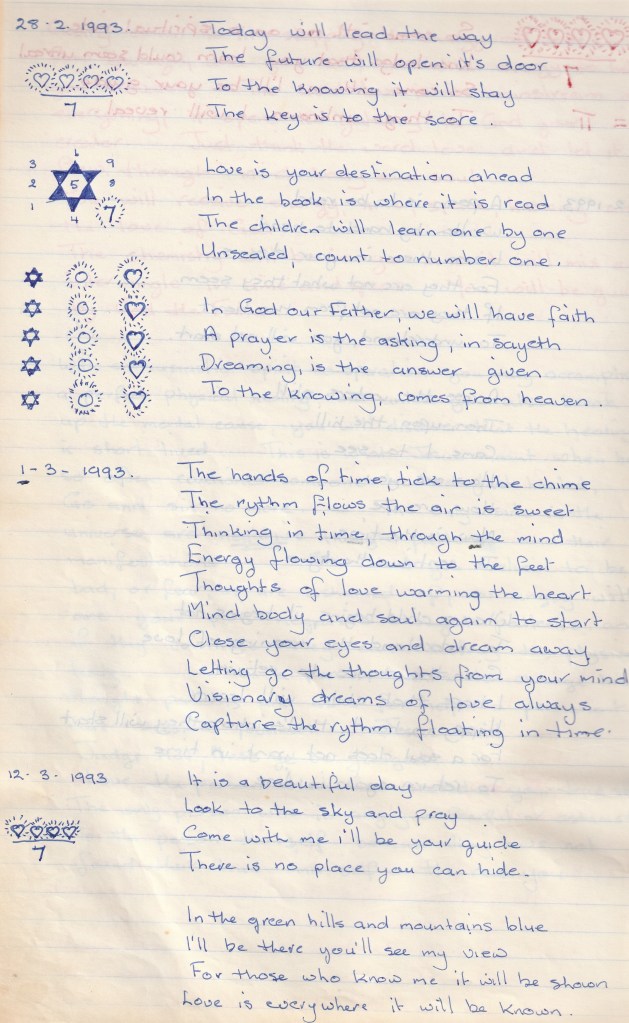 28.2.1993. Today will lead the way
The future will open it's door
To the knowing it will stay
7 The key is to the score.
6
3 9
2 5 8
1 7
4
Love is your destination ahead
In the book is where it is read
The children will learn one by one
Unsealed, count to number one.
In God our Father, we will have faith
A prayer is the asking, in sayeth
Dreaming, is the answer given
To the knowing, comes from heaven.
1-3-1993. The hands of time, tick to the chime
The rythm flows the air is sweet
Thinking in time, through the mind
Energy flowing down to the feet
Thoughts of love warming the heart
Mind body and soul again to start
Close your eyes and dream away
Letting go the thoughts from your mind
Visionary dreams of love always
Capture the rythm floating in time.
12.3.1993 It is a beautiful day
Look to the sky and pray
Come with me i'll be your guide
7 There is no place you can hide.
In the green hills and mountains blue
I'll be there you'll see my view
For those who know me it will be shown
Love is everywhere it will be known.